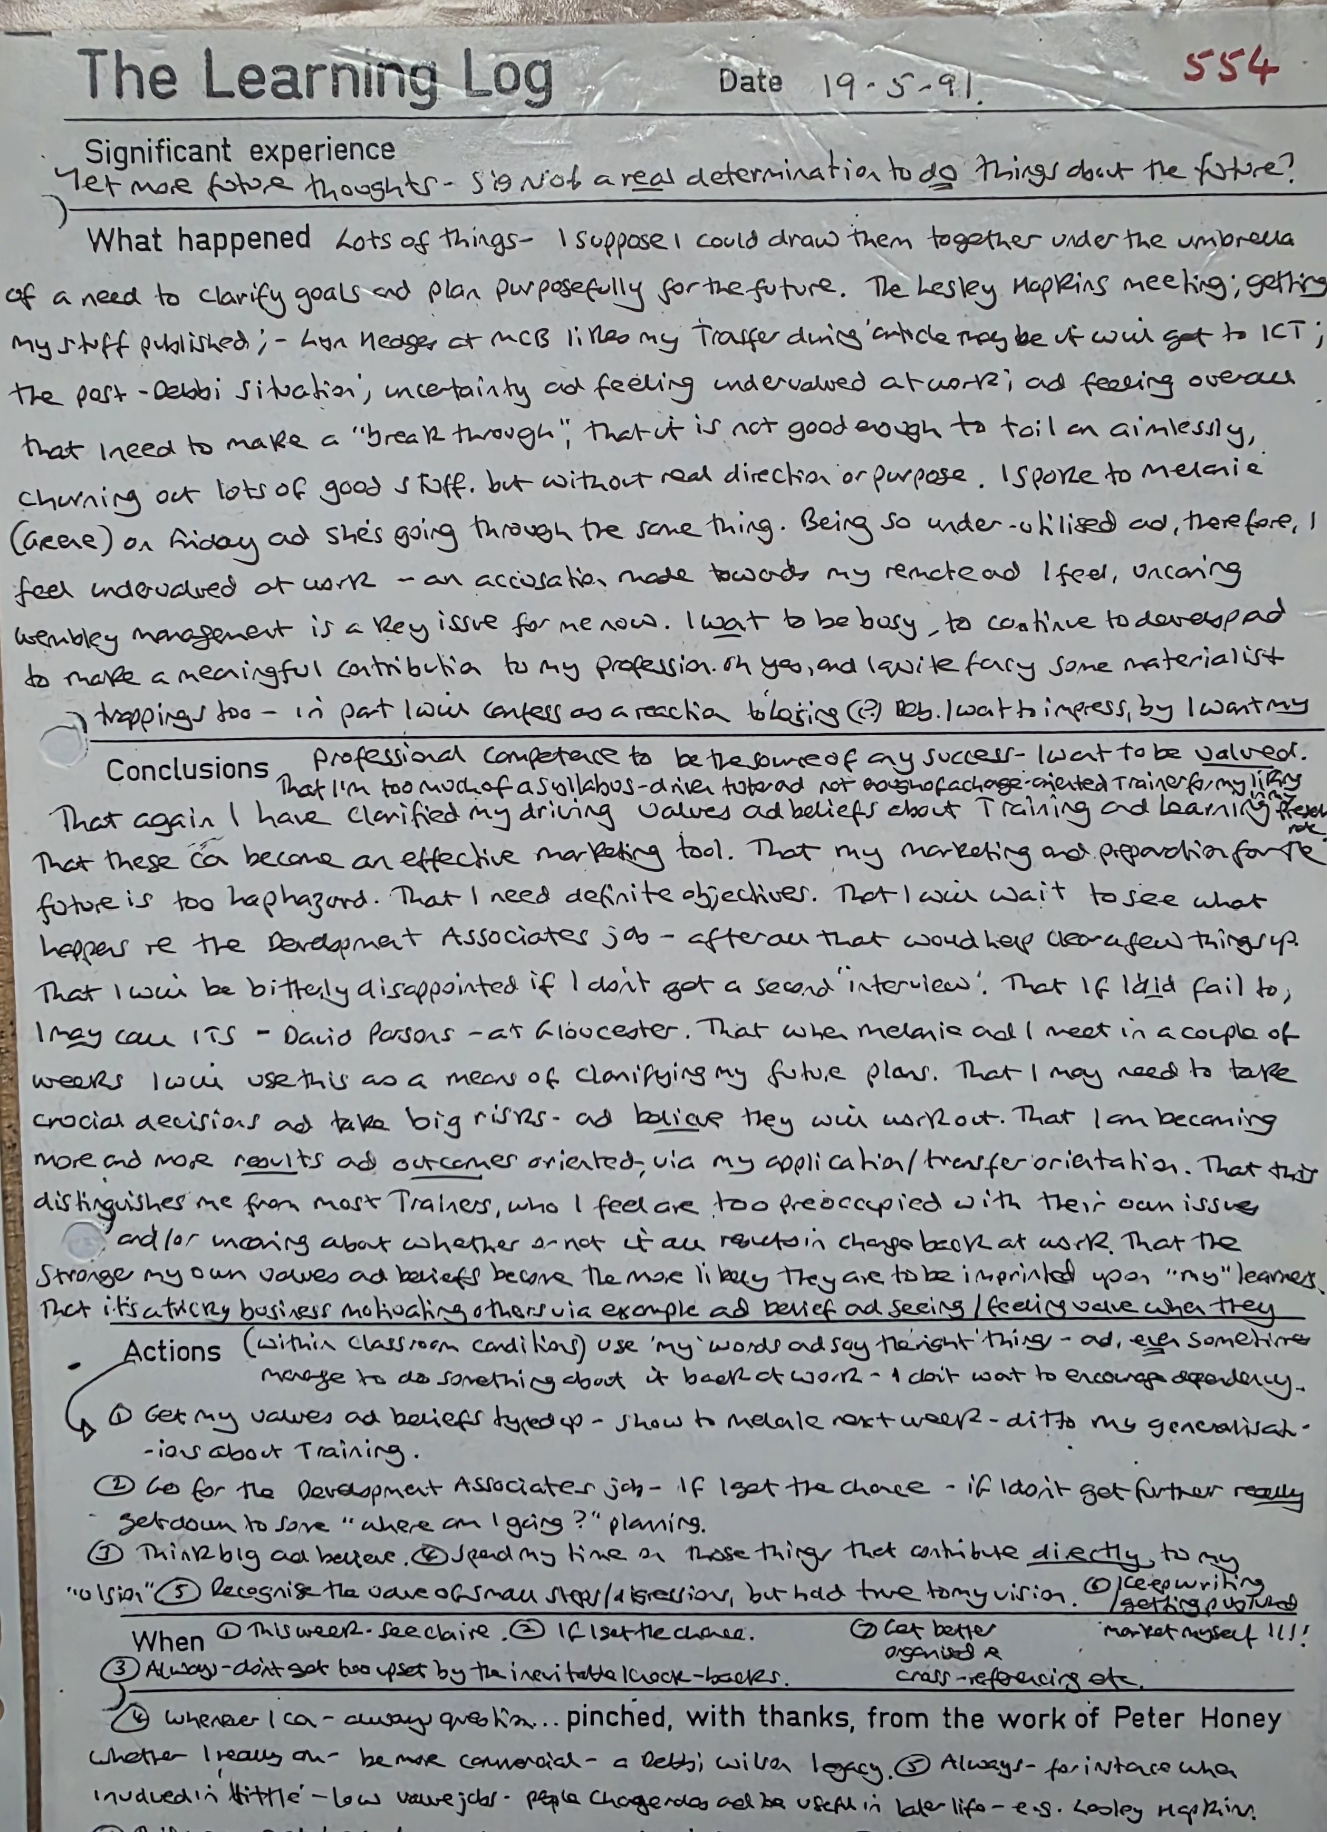 The Learning Log Date 19-5-91. 554
Significant experience
Yet more future thoughts - sign of a real determination to do things about the future?
What happened Lots of things - I suppose I could draw them together under the umbrella
of a need to clarify goals and plan purposefully for the future. The Lesley Hopkins meeting; getting
my stuff published; - Lyn Hedges at MCB likes my 'Transfer during' article maybe it will get to ICT;
the post-Debbi situation; uncertainty ad feeling undervalued at work; ad feeling overall
that I need to make a "break through", that it is not good enough to toil on aimlessly,
churning out lots of good stuff, but without real direction or purpose. I spoke to Melanie
(Greene) on Friday ad she's going through the same thing. Being so under-utilised ad, therefore, I
feel undervalued at work - an accusation made towards my remote ad I feel, uncaring
Wembley management is a key issue for me now. I want to be busy, to continue to develop ad
to make a meaningful contribution to my profession. oh yes, and I quite fancy some materialist
trappings too - in part I will confess as a reaction to losing (?) Deb. I want to impress, by I want my
professional competence to be the source of any success - I want to be valued.
Conclusions That I'm too much of a syllabus-driven tutor ad not enough of a change-oriented Trainer for my liking
That again I have clarified my driving values ad beliefs about Training and Learning
That these can become an effective marketing tool. That my marketing and preparation for the
future is too haphazard. That I need definite objectives. That I will wait to see what
happens re the Development Associates job - after all that would help clear a few things up.
That I will be bitterly disappointed if I don't get a second 'interview'. That If I did fail to,
I may call ITS - David Parsons - at Gloucester. That when Melanie ad I meet in a couple of
weeks I will use this as a means of clarifying my future plans. That I may need to take
crucial decisions ad take big risks - ad believe they will work out. That I am becoming
more and more results ad outcomes oriented, via my application/transfer orientation. That this
distinguishes me from most Trainers, who I feel are too preoccupied with their own issues
and/or uncaring about whether or not it all results in change back at work. That the
stronger my own values ad beliefs become the more likely they are to be imprinted upon "my" learners.
That it's a tricky business motivating others via example ad belief ad seeing/feeling value when they
Actions (within classroom conditions) use 'my' words ad say the 'right' thing - ad, even sometimes
manage to do something about it back at work - I don't want to encourage dependency.
① Get my values ad beliefs typed up - show to Melanie next week - ditto my generalisat-
-ions about Training.
② Go for the Development Associates job - If I get the chance - if I don't get further really
get down to some "where am I going?" planning.
③ Think big ad believe. ④ Spend my time on those things that contribute directly to my
"vision" ⑤ Recognise the value of small steps/digressions, but hold true to my vision. ⑥ Keep writing
/getting published
When ① This week - see Claire. ② If I get the chance. ⑦ Get better market myself !!!!
organised re
③ Always - don't get too upset by the inevitable knock-backs. cross-referencing etc.
④ Whenever I can - always question... pinched, with thanks, from the work of Peter Honey
whether I really am - be more commercial - a Debbi Wilson legacy. ⑤ Always - for instance when
involved in 'little' - low value jobs - people change roles ad be useful in later life - e.g. Lesley Hopkins.